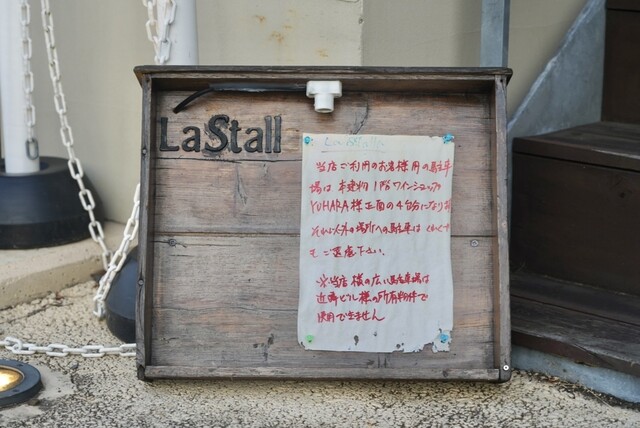 LaStall
当店ご利用のお客様用の駐車
場は 本建物1階ワインショップ
YUHARA様正面の4台分になります
それ以外の場所への駐車は くれぐれ
も ご遠慮下さい。
※当店横の広い駐車場は
近隣ビル様の所有物件で
使用できません